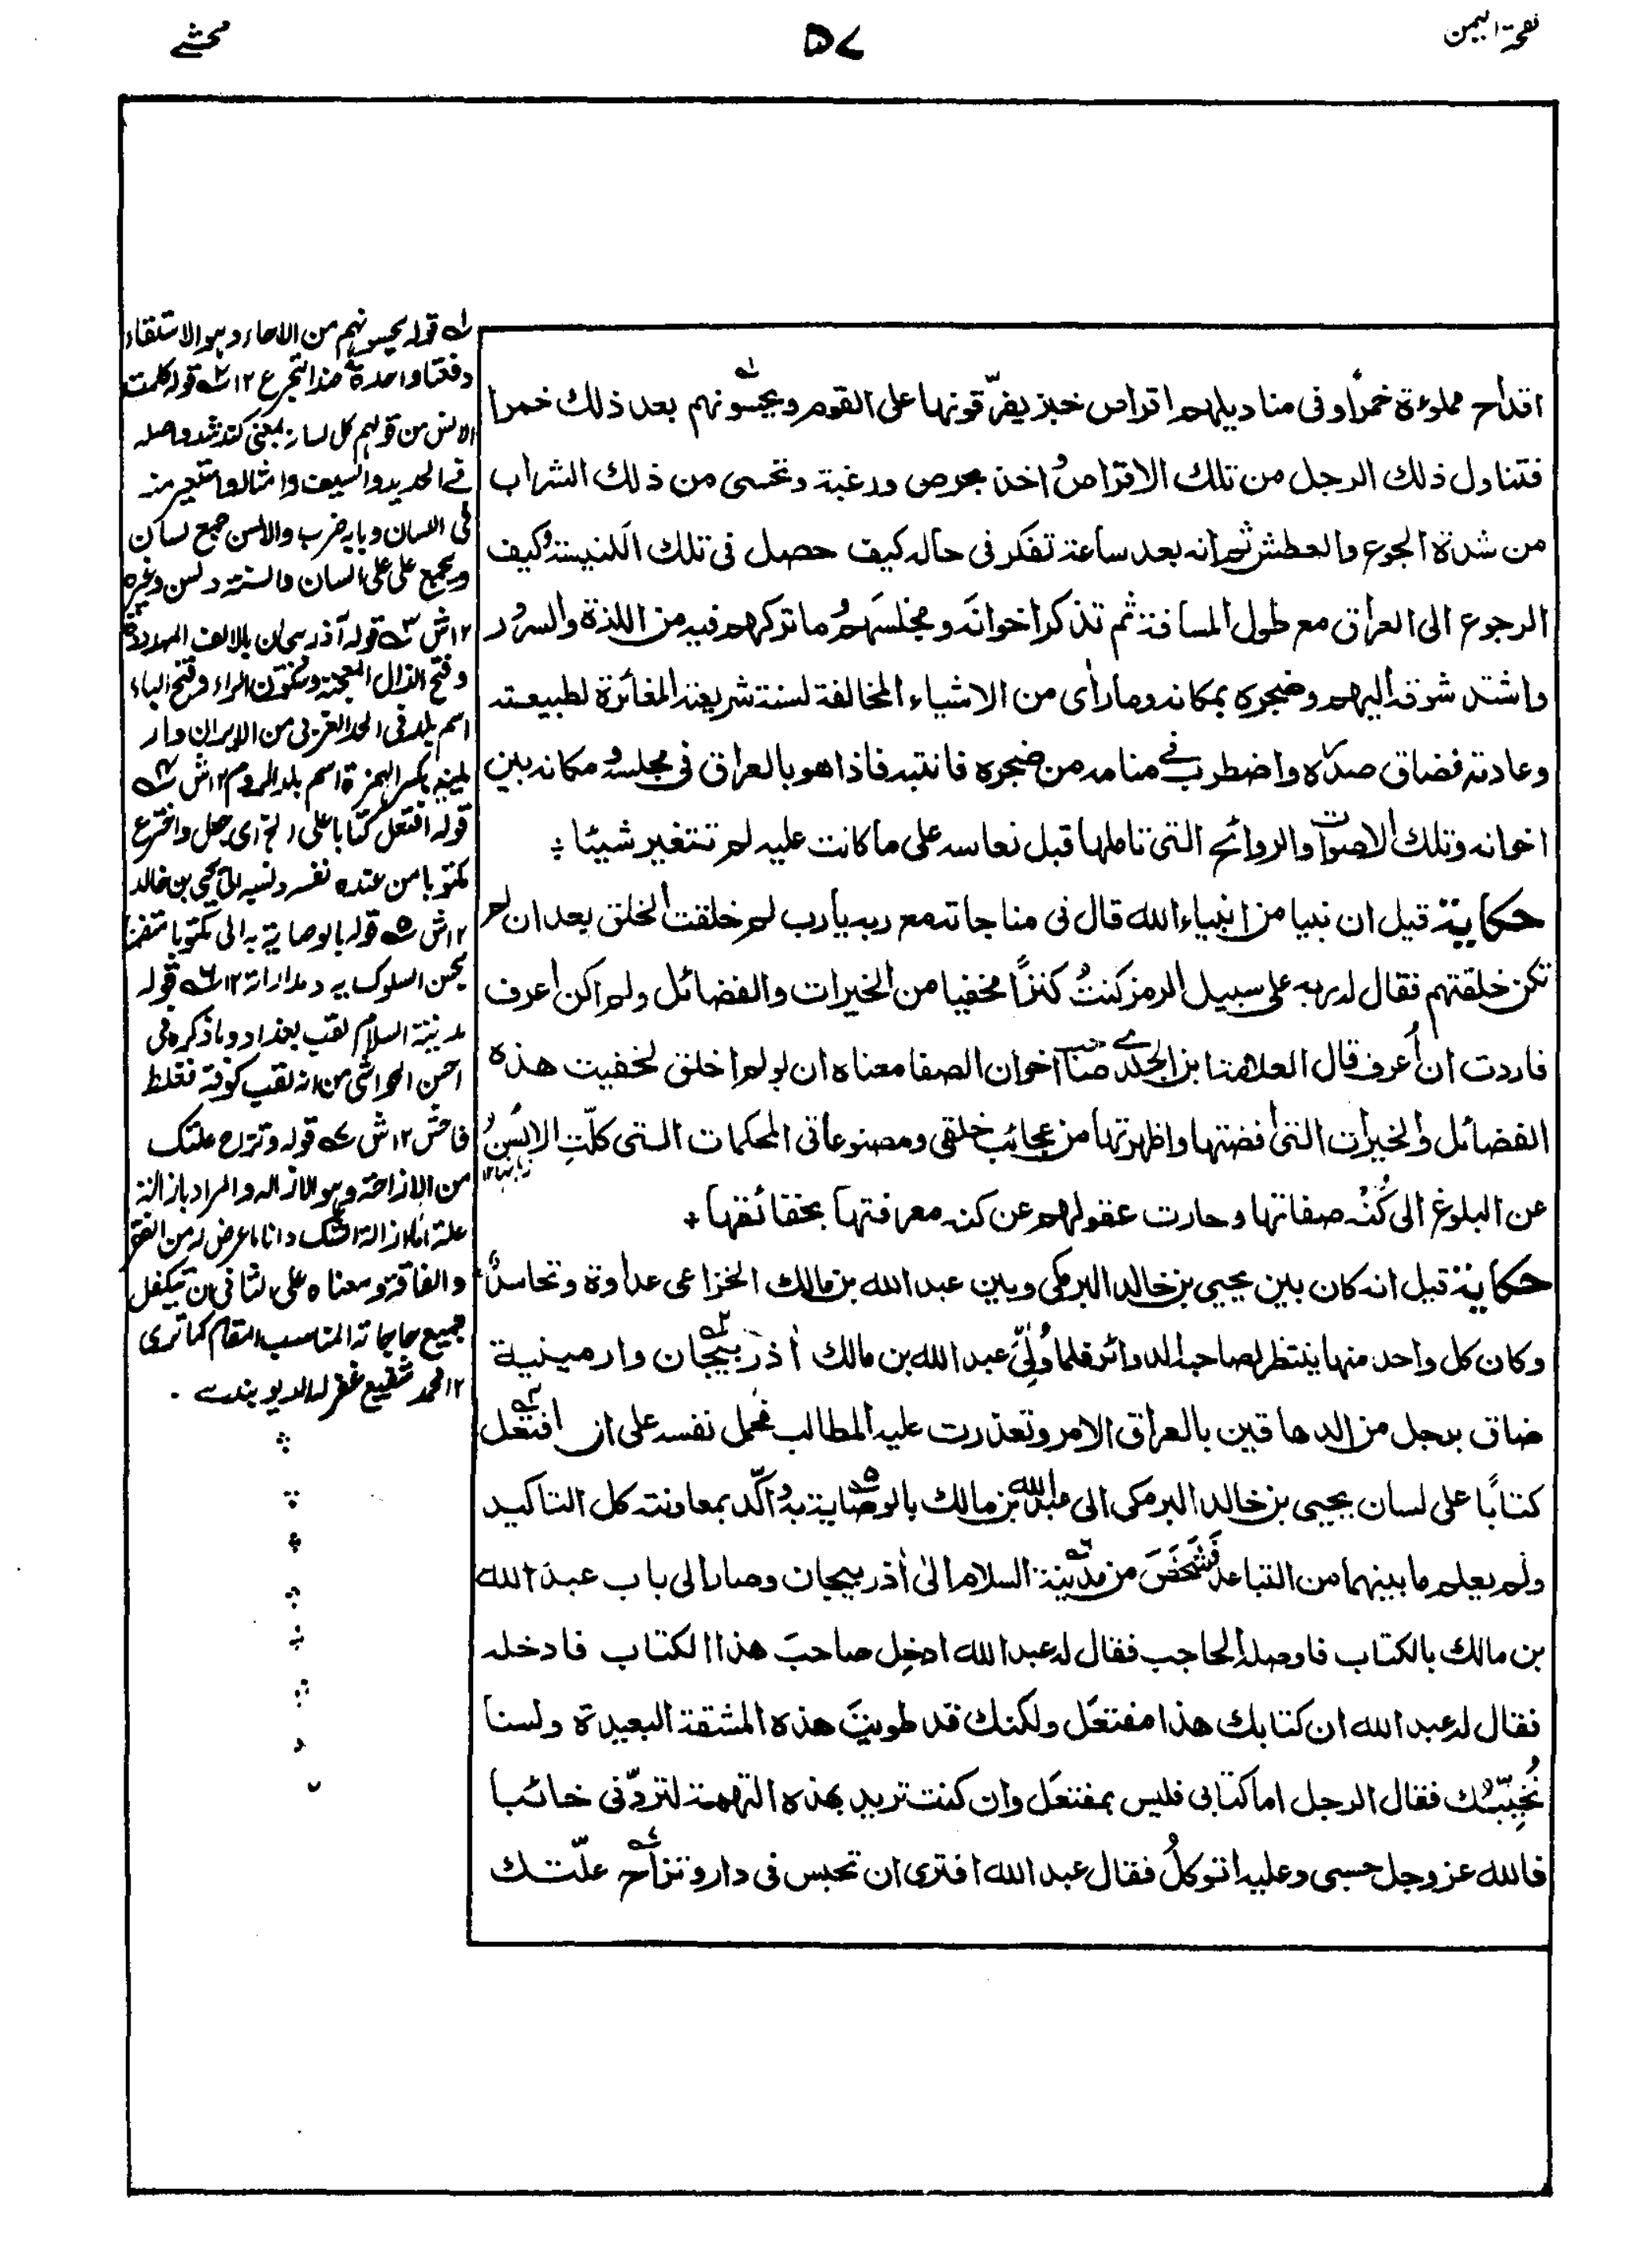 نفحة اليمن
۵۷
محشے
اقداح مملوءة خمرا وفى مناديلهم اقراص خبز يفرّقونها على القوم ويحسونهم بعد ذلك خمرا
فتناول ذلك الرجل من تلك الاقراص اخذ بحرص ورغبة وتحسى من ذلك الشراب
من شدة الجوع والعطش ثم انه بعد ساعة تفكر فى حاله كيف حصل فى تلك الكنيسة وكيف
الرجوع الى العراق مع طول المسافة ثم تذكر اخوانه ومجلسهم وما تركهم فيه من اللذة والسرور
واشتد شوقه اليهم وضجره بمكانه وما راى من الاشياء المخالفة لسنة شريعته المغائرة لطبيعته
وعادته فضاق صدره واضطرب فى منامه من ضجره فانتبه فاذا هو بالعراق فى مجلسه ومكانه بين
اخوانه وتلك الاصوات والروائح التى تاملها قبل نعاسه على ما كانت عليه لم تتغير شيئا
حكاية قيل ان نبيا من انبياء الله قال فى مناجاته مع ربه يا رب لم خلقت الخلق بعد ان لم
تكن خلقتهم فقال له ربه على سبيل الرمز كنتُ كنزًا مخفيا من الخيرات والفضائل ولم اكن اعرف
فاردت ان أُعرف قال العلامة ابن الجلدى صاحب اخوان الصفا معناه ان لو لم اخلق لخفيت هذه
الفضائل والخيرات التى افضتها واظهرتها من عجائب خلقى ومصنوعاتى المحكمات التى كلّتِ الالسُنُ
عن البلوغ الى كُنْه صفاتها وحارت عقولهم عن كنه معرفتها بحقائقها
حكاية قيل انه كان بين يحيى بن خالد البرمكى وبين عبد الله بن مالك الخزاعى عداوة وتحاسدٌ
وكان كل واحد منهما ينتظر لصاحبه الدوائر فلما وُلِّىَ عبد الله بن مالك أذربيجان وارمينية
ضاق برجل من الدهاقين بالعراق الامر وتعذرت عليه المطالب فحمل نفسه على ان افتعل
كتابًا على لسان يحيى بن خالد البرمكى الى عبد الله بن مالك بالوصاية به واكّد بمعاونته كل التاكيد
ولم يعلم ما بينهما من التباعد فَشَخَصَ من مدينة السلام الى أذربيجان وصار الى باب عبد الله
بن مالك بالكتاب فاوصله الحاجب فقال له عبد الله ادخِل صاحبَ هذا الكتاب فادخله
فقال له عبد الله ان كتابك هذا مفتعَل ولكنك قد طويتَ هذه المشقة البعيدة ولسنا
نُخِيّبُك فقال الرجل اما كتابى فليس بمفتعَل وان كنت تريد بهذه التهمة لتردّنى خائبا
فالله عز وجل حسبى وعليه اتوكلُ فقال عبد الله افترى ان تحبس فى دار وتزاح علّتك
له قوله يحسونهم من الاحساء وهو الاستقاء
دفعة واحدة ضد التجرع ١٢ له قوله كلت
الالسن من قولهم كل لسانه بمعنى كند شد واصله
فے الحديد والسيف وامثالهما مستعير منه
فى اللسان وبابه ضرب والالسن جمع لسان
ويجمع على على السان والسنة ولسن وغيره
١٢ش قوله آذربيجان بالالف الممدودة
وفتح الذال المعجمة وسكون الراء وفتح الباء
اسم بلد فى الحد الغربى من الايران وار
مينيه بكسر الهمزة اسم بلد الروم ١٢ش
قوله افتعل كتابا على الخ اى جعل واخترع
مكتوبا من عنده نفسه ونسبه الى يحيى بن خالد
١٢ش قوله بالوصاية به الى مكتوبا متضمنا
بحسن السلوك به ومداراته ١٢ قوله
مدينة السلام لقب بغداد وما ذكره فى
احسن الحواشى من انه لقب كوفة فغلط
فاحش ١٢ش قوله وتزاح علتك
من الازاحة وهو الازاله والمراد بازالة
علته اما ازالة الشك واما ما عرض له من الفقر
والفاقة ومعناه على الثانى ان يتكفل
جميع حاجاته المناسب المقام كما ترى
١٢ محمد شفيع غفر له الديوبندے